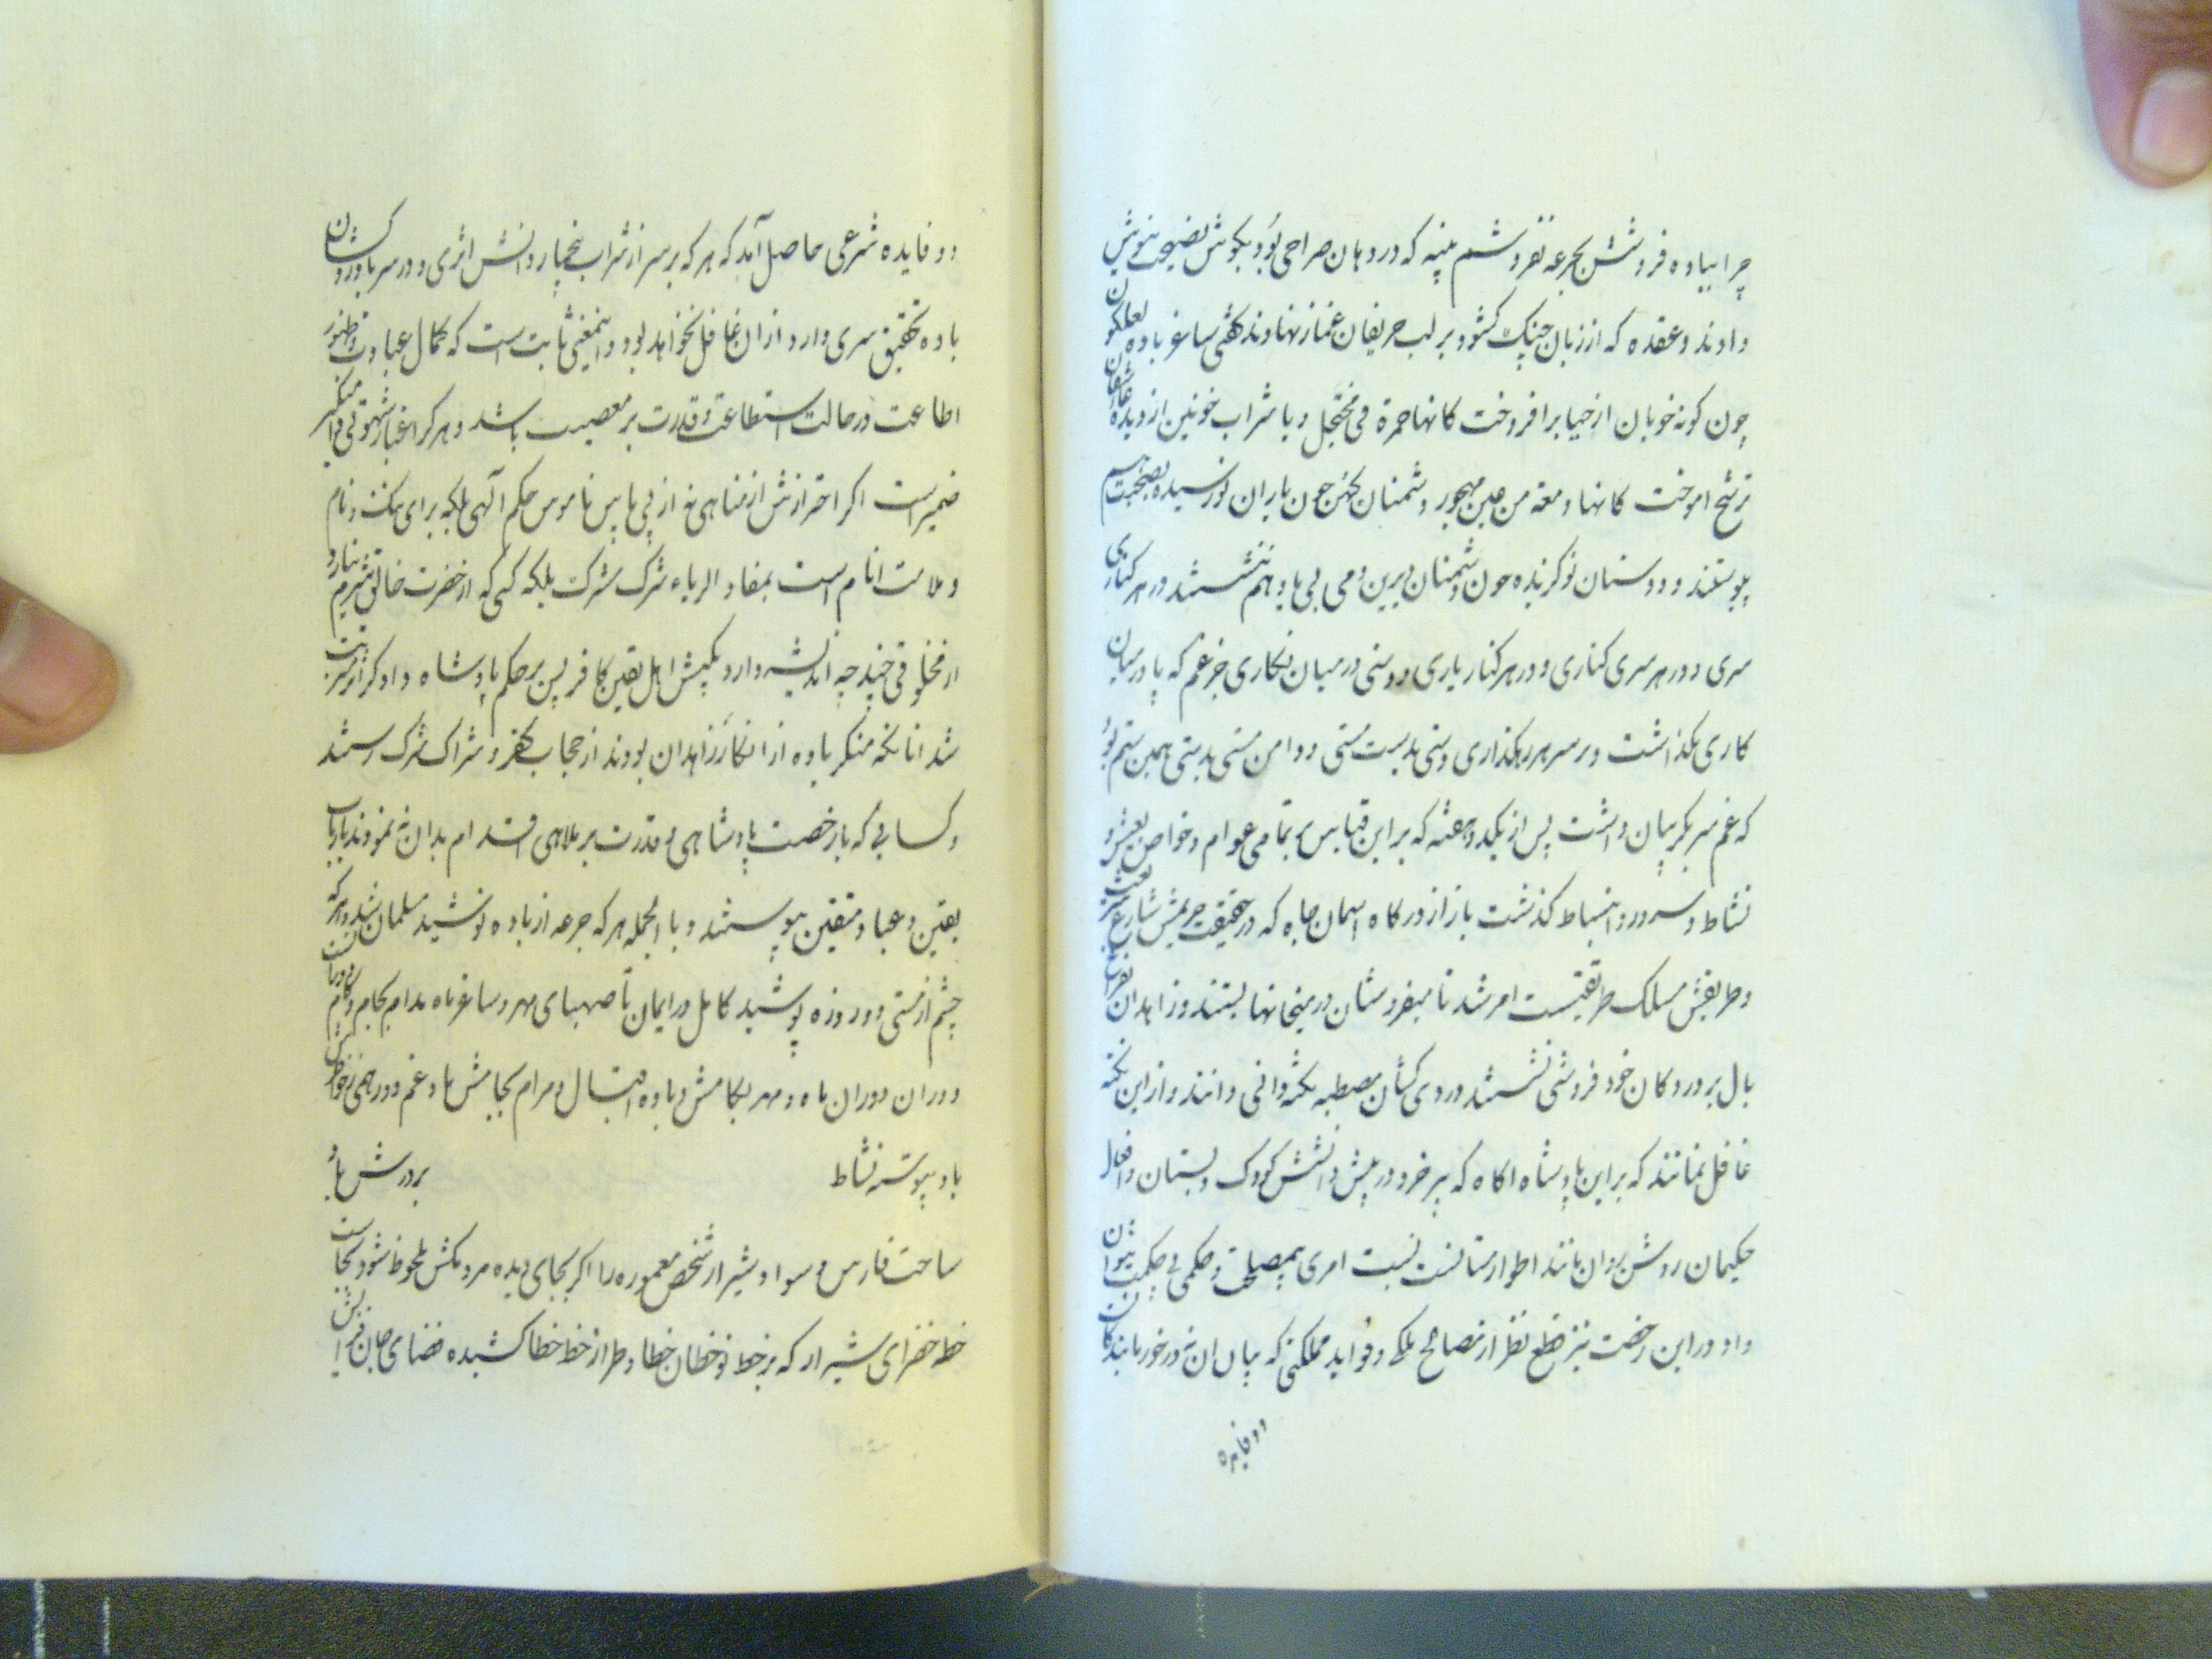 چرا بباده فروشش بجرعه نفروشم پنبه که در دهان صراحی بود بکوش نصیحت نیوش
دادند و عقده که از زبان چنک کشود بر لب حریفان غماز نهادند کشتی ساغر باده لعلکون
چون کونه خوبان از حیا برافروخت کانها حمرة فی مختجل و یا شراب خونین از دیده عاشقان
ترشح اموخت کانها دمعة من عین مهجور دشمنان کهن چون یاران نورسیده بصحبت هم
پیوستند و دوستان نوکزیده چون دشمنان دیرین دمی بی یاد هم ننشستند در هر کناری
سری و در هر سری کناری و در هر کنار یاری و دستی در میان نکاری جز غم که پا در میان
کاری نکذاشت و بر سر هر رهکذاری دستی بدست مستی و دامن مستی بدستی همین ستم بود
که غم سر بکریبان داشت پس از یکدو هفته که بر این قیاس بر تمامی عوام و خواص بعیش و
نشاط و سرور و انبساط کذشت باز از درکاه اسمان جاه که در حقیقت حریمش شارع شریعت
و طریقش مسلک طریقتست امر شد تا میفروشان در میخانها بستند و زاهدان
بال بر در دکان خود فروشی نشستند دردی کشان مصطبه نکته دانی دانند و از این نکته
غافل نمانند که بر این پادشاه اکاه که پیر خرد در پیش دانشش کودک دبستان و افعال
حکیمان روشن روان مانند اطوار مستانست نسبت امری بیمصلحت و حکمی بی حکمت نتوان
داد در این رخصت نیز قطع نظر از مصالح ملکی و فواید مملکتی که بیان ان نه در خور ما بندکان
دو فایده
دو فایده شرعی حاصل آمد که هر که بر سر از شراب خمار دانش اثری و در سر با درد کشان
باده تحقیق سری دارد از ان غافل نخواهد بود و اینمعنی ثابت است که کمال عبادت و ظهور
اطاعت در حالت استطاعت و قدرت بر معصیت باشد و هر کرا غبار شهوتی دامنکیر
ضمیر است اکر احترازش از مناهی نه از پی پاس ناموس حکم الهی بلکه برای ننک و نام
و ملامت انام است بمفاد الریاء شرک شرکت بلکه کسی که از حضرت خالق شرم نیارد
از مخلوقی چند چه اندیشه دارد بکیش اهل یقین کافر پس بر حکم پادشاه دادکر
شد انانکه منکر باده از انکار زاهدان بودند از حجاب کفر و شراک شرک رستند
و کسانی که با رخصت پادشاهی و قدرت بر ملاهی اقدام بدان نه نمودند بارباب
یقین و عباد متقین پیوستند و با الجمله هر که جرعه از باده نوشید مسلمان شد و هر که
چشم از مستی دو روزه پوشید کامل در ایمان تا صهبای مهر و ساغر ماه مدام بجام
دوران دوران ماه و مهر بکامش و باده اقبال و مرام بجامش باد و غم دور همی ز خاطرش
باد پیوسته نشاط بر درش باد
ساحت فارس و سواد شیراز شخص معموره را اکر بجای دیده مردمکش ملحوظ شود بجاست
خطه خضرای شیراز که بر خط نو خطان خطا و طراز خط خطا کشیده فضای